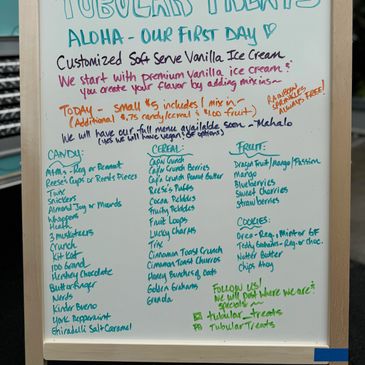 TUBULAR TREATS
ALOHA - OUR FIRST DAY
Customized Soft Serve Vanilla Ice Cream
We start with premium vanilla ice cream &
you create your flavor by adding mix ins~
TODAY - Small $5 includes 1 mix in -
(Additional $.75 candy/cereal & $1.00 fruit)
RAINBOW
SPRINKLES
ALWAYS FREE!
We will have our full menu available soon - Mahalo
(yes we will have vegan & GF options)
CANDY:
M+Ms - Reg or Peanut
Reese's Cups or Reese's Pieces
Twix
Snickers
Almond Joy or Mounds
Whoppers
Heath
3 musketeers
Crunch
Kit Kat
100 Grand
Hershey Chocolate
Butterfinger
Nerds
Kinder Bueno
York Peppermint
Ghiradelli Salt Caramel
CEREAL:
Cap'n Crunch
Cap'n Crunch Berries
Cap'n Crunch Peanut Butter
Reese's Puffs
Cocoa Pebbles
Fruity Pebbles
Fruit Loops
Lucky Charms
Trix
Cinnamon Toast Crunch
Cinnamon Toast Churros
Honey Bunches of Oats
Golden Grahams
Granola
FRUIT:
Dragon Fruit/Mango/Passion
Mango
Blueberries
Sweet Cherries
Strawberries
COOKIES:
Oreo - Reg, Mint or GF
Teddy Grahams - Reg or Choc.
Nutter Butter
Chips Ahoy
FOLLOW US!
We will post where we are &
specials ~
tubular_treats
Tubular Treats